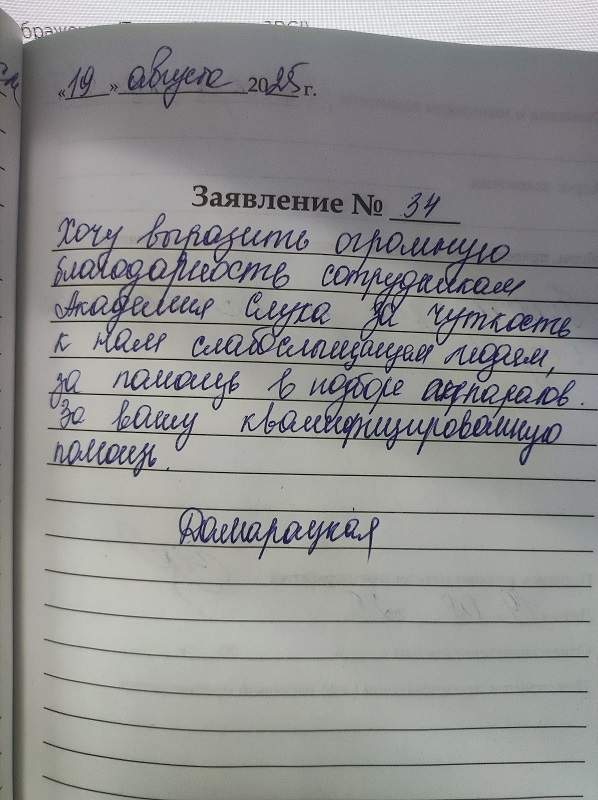 «19» августа 2025 г.
Заявление № 34
Хочу выразить огромную
благодарность сотрудникам
Академия Слуха за чуткость
к нам слабослышащем людям,
за помощь в подборе аппаратов.
За вашу квалифицированную
помощь.
Домарацкая